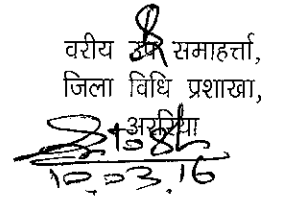 वरीय उप समाहर्त्ता,
जिला विधि प्रशाखा,
अररिया
10.03.16